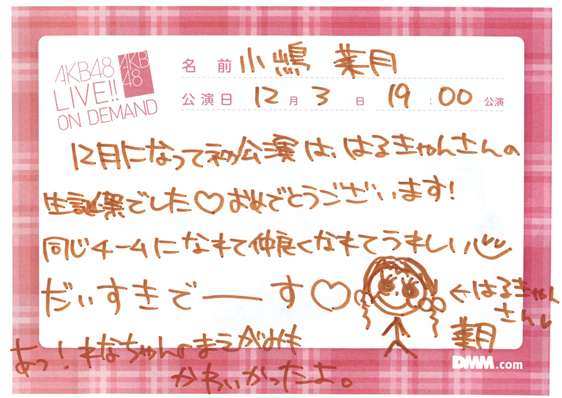 AKB48
LIVE!!
ON DEMAND
AKB
48
名前 小嶋 菜月
公演日 12月 3日 19:00公演
12月になって初公演は、はるきゃんさんの
生誕祭でした♡おめでとうございます!
同じチームになれて仲良くなれてうれしい
だいすきでーーす♡
←はるきゃん
さん
菜月
あっ!れなちゃんのまえがみも
かわいかったよ。
DMM.com